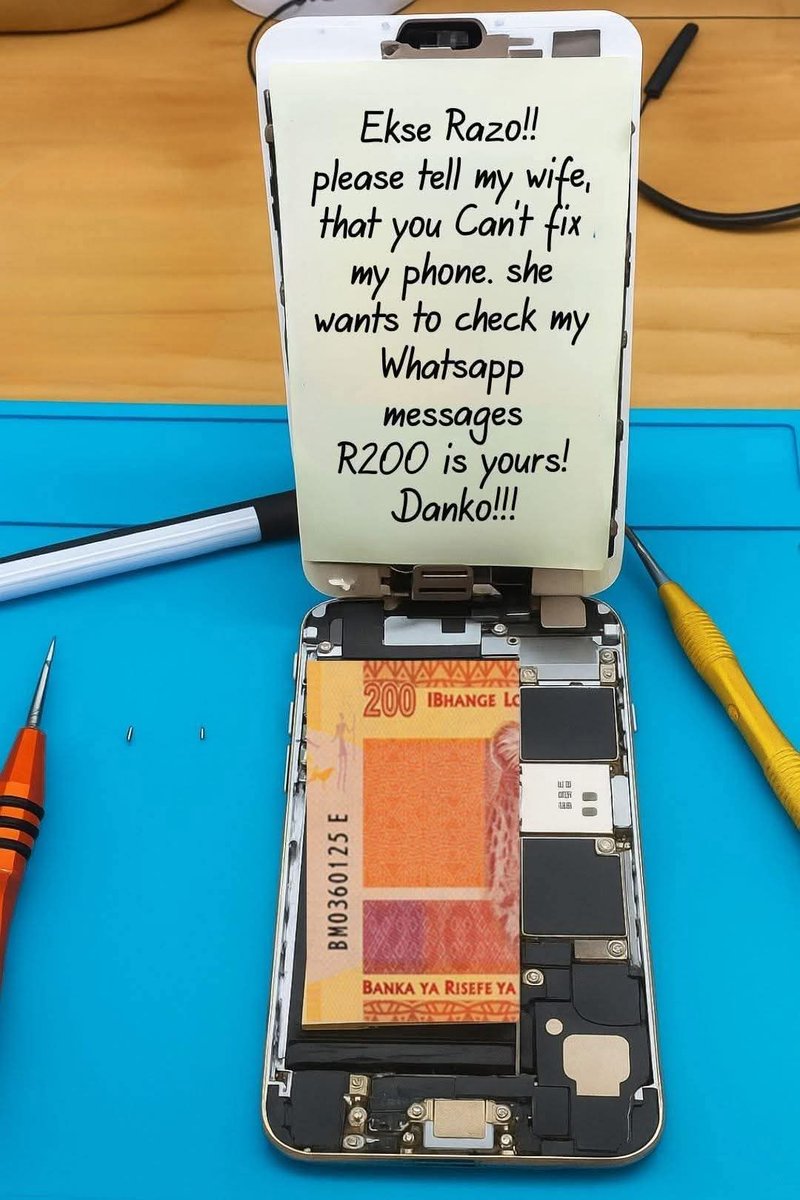 Ekse Razo!!
please tell my wife,
that you Can't fix
my phone. she
wants to check my
Whatsapp
messages
R200 is yours!
Danko!!!
200 IBHANGE LO
BM0360125 E
BANKA YA RISEFE YA